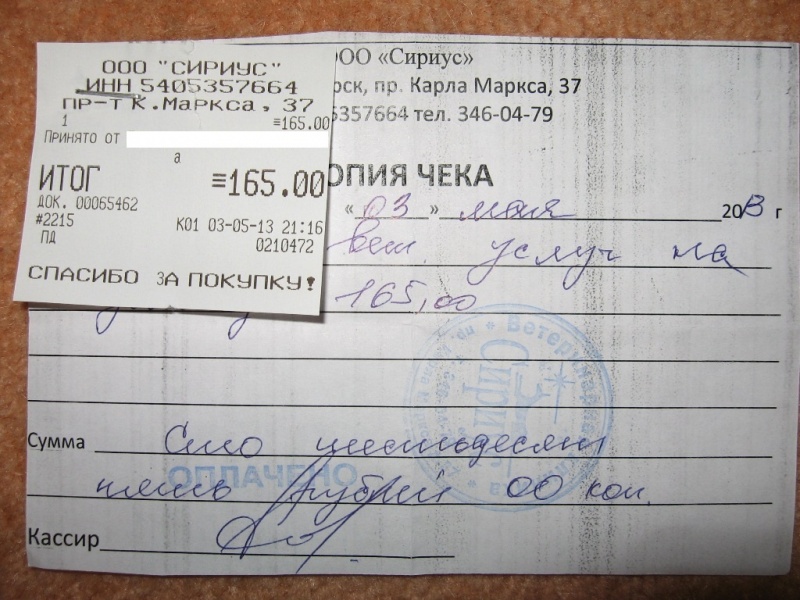 ООО "СИРИУС"
ИНН 5405357664
ПР-Т К.МАРКСА, 37
1 ≡165.00
ПРИНЯТО ОТ
а
ИТОГ ≡165.00
ДОК. 00065462
#2215 К01 03-05-13 21:16
ПД 0210472
СПАСИБО ЗА ПОКУПКУ!
ОО «Сириус»
рск, пр. Карла Маркса, 37
5357664 тел. 346-04-79
ОПИЯ ЧЕКА
«03» мая 2013 г
вет услуг на
165,00
Ветеринарная
Сириус
Сумма Сто шестьдесят
ОПЛАЧЕНО
пять рублей 00 коп.
Кассир